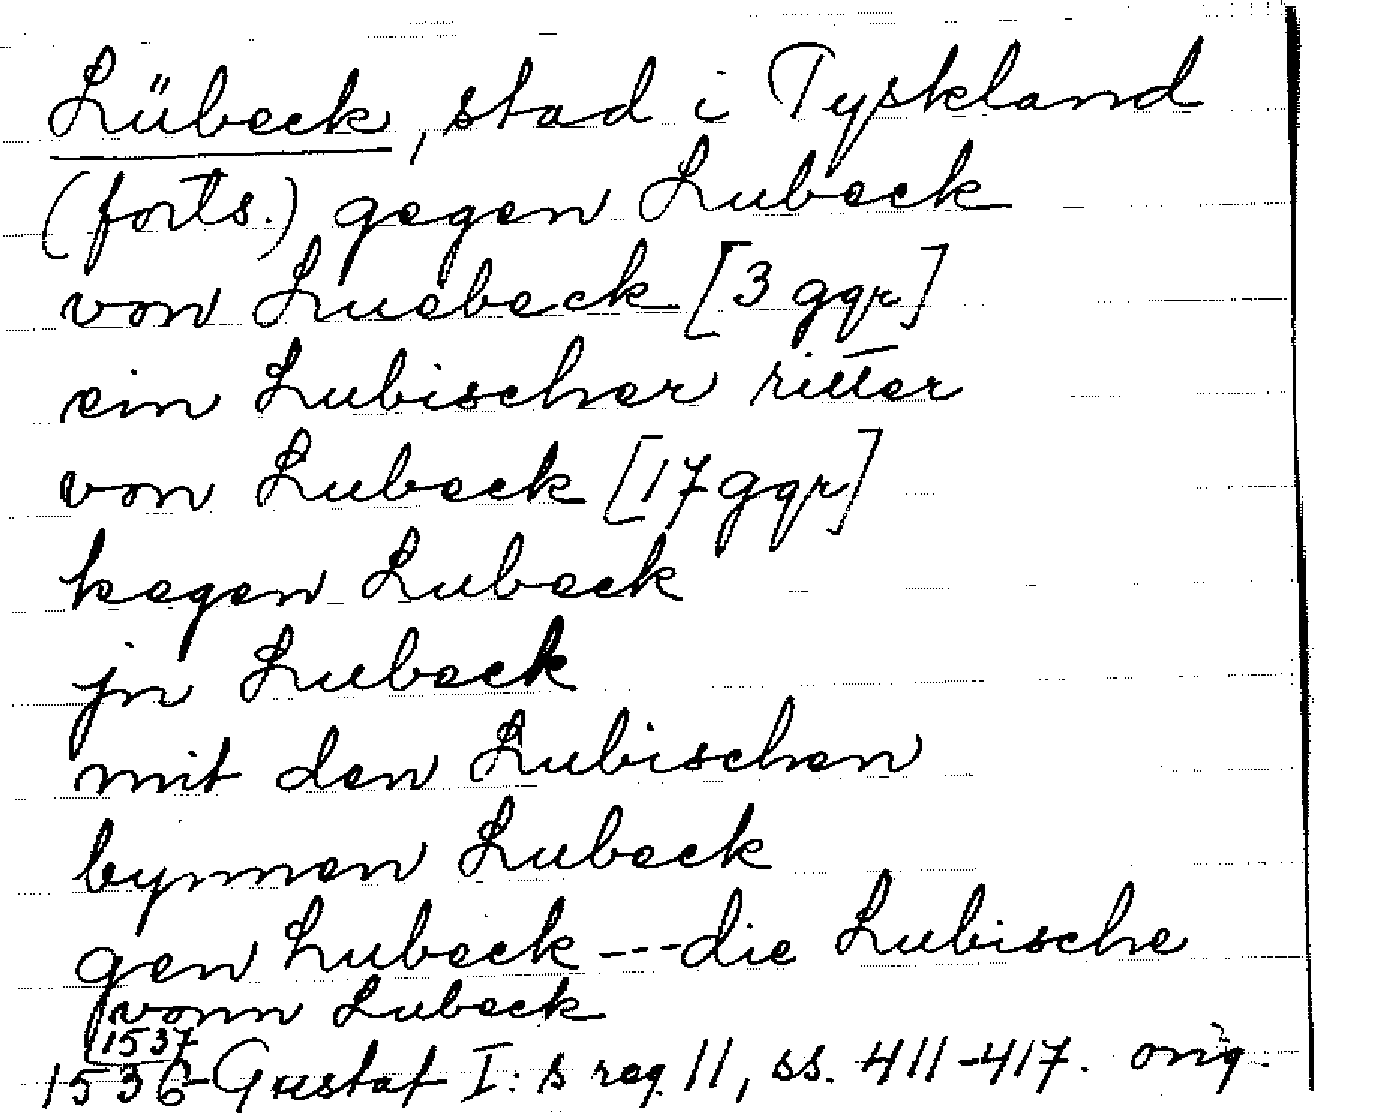 Lübeck, stad i Tyskland
(forts.) gegen Lubeck
von Luebeck [3 ggr]
ein Lubischer ritter
von Lubeck [17 ggr]
kegen Lubeck
jn Lubeck
mit den Lubischen
bynnen Lubeck
gen Lubeck---die Lubische
vonn Lubeck
1537
1536 Gustaf I:s reg. 11, ss. 411-417. orig.